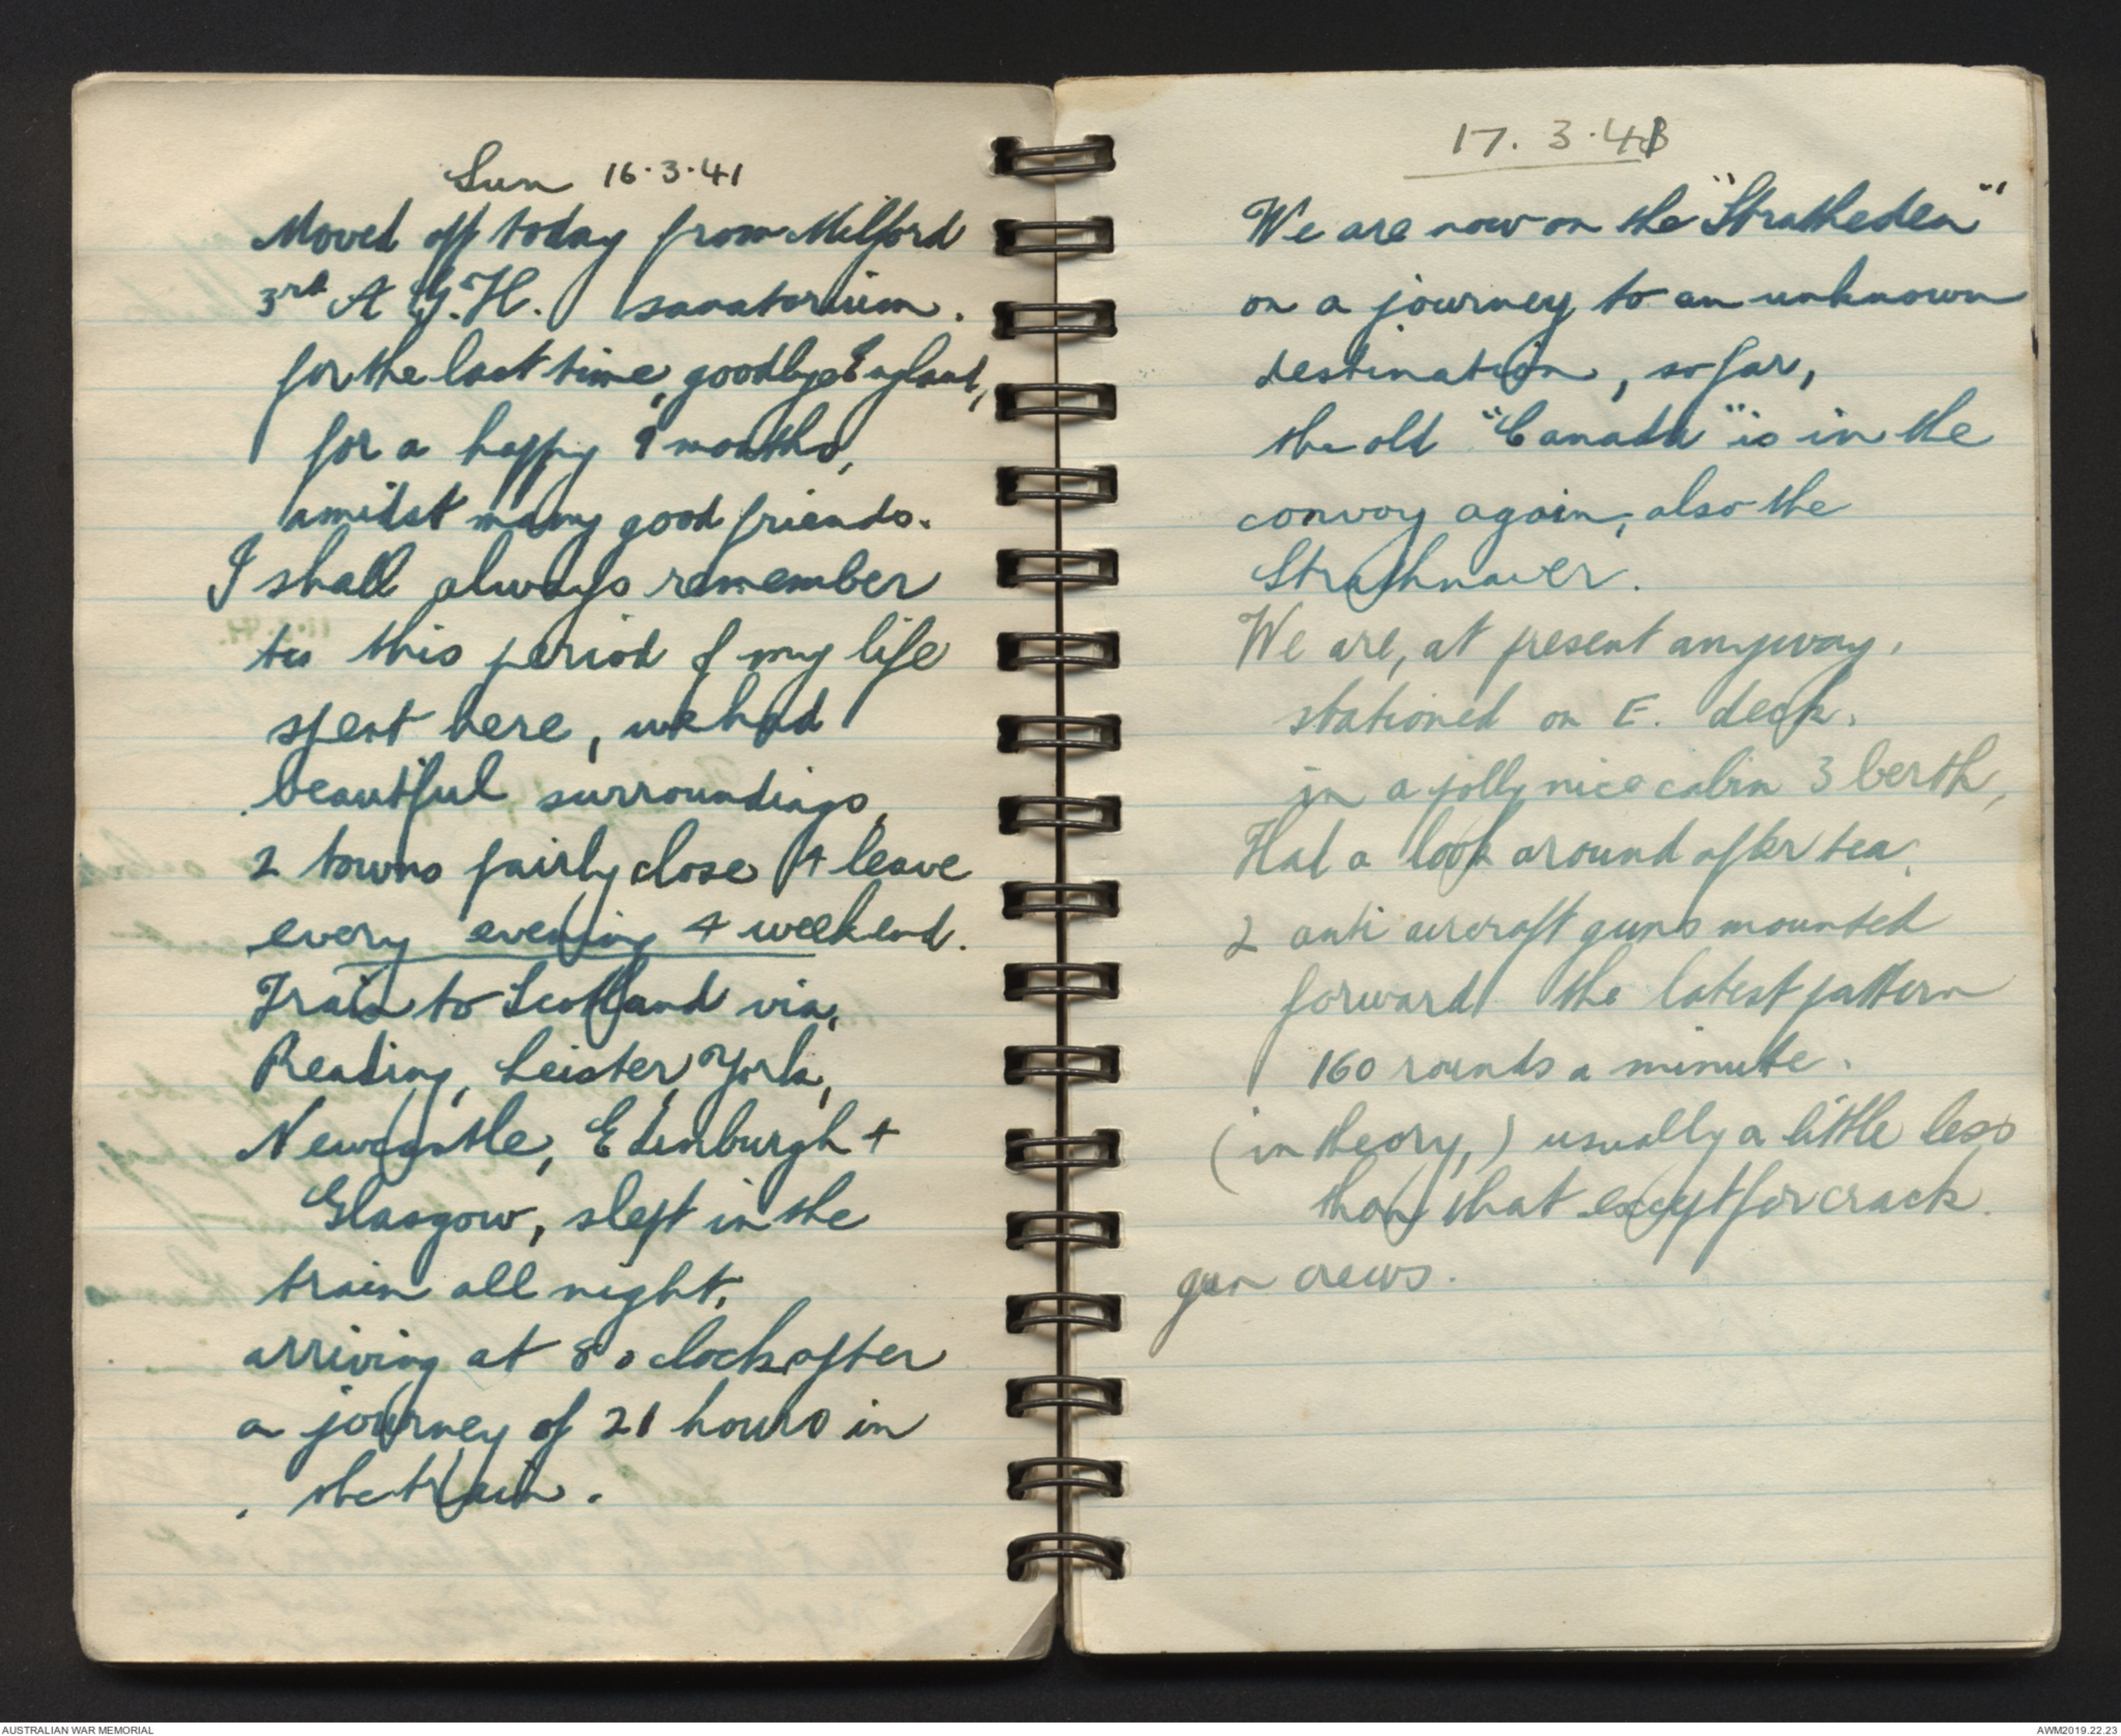 Sun 16.3.41
Moved off today from Milford
3rd A.G.H. sanatorium.
for the last time, goodbye England,
for a happy 9 months,
amidst many good friends.
I shall always remember
this period of my life
spent here, we had
beautiful surroundings,
2 towns fairly close + leave
every evening + weekend.
Train to Scotland via,
Reading, Leister, York,
Newcastle, Edinburgh +
Glasgow, slept in the
train all night,
arriving at 8 o clock after
a journey of 21 hours in
the train.
17.3.41
We are now on the "Stratheden"
on a journey to an unknown
destination, so far,
the old "Canada" is in the
convoy again, also the
Strathnaver.
We are, at present anyway,
stationed on E. deck.
in a jolly nice cabin 3 berth,
Had a look around after tea.
2 anti aircraft guns mounted
forward the latest pattern
160 rounds a minute.
(in theory,) usually a little less
than that except for crack
gun crews.
AUSTRALIAN WAR MEMORIAL
AWM2019.22.23